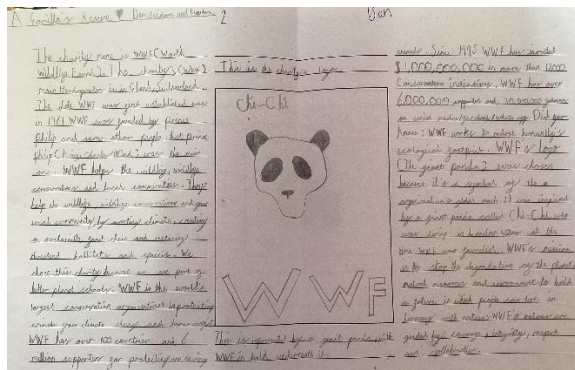 A Gorilla's Rescue
2
Dan
The charity name is WWF (World
Wildlife Fund). The charity's (WWF)
main headquarters is in Gland, Switzerland.
The date WWF was first established was
in 1961. WWF was founded by prince
philip and some other people that prince
philip (King charles III Dad) was the main
one. WWF helps the wildlife, wildlife
conservations and local communities. They
help the wildlife, wildlife conservations and
local community by
a sustainable food chain and restoring
habitats and species. We
chose this charity because we are part of
better planet schools. WWF is the world's
largest conservation organisations
climate change
WWF has over 100 countries and 6
million supporters
This is the charity's logo
Chi-Chi
WWF
This is represented by a giant panda with
WWF in bold underneath it.
Since 1995 WWF has invested
$1,000,000,000 in more than 12,000
Conservation initiatives. WWF has over
6,000,000 supporters and
on social media Did you
know: WWF works to reduce humanity's
ecological footprint. WWF's logo
(the giant panda) was chosen
because it's a symbol of the
organisation's It was inspired
by a giant panda called Chi-Chi who
was living in London Zoo at the
time WWF was founded. WWF's mission
is to stop the degradation of the planet's
natural resources and environment to build
a future in which people can live in
harmony with nature. WWF's values are
guided by: courage, integrity, respect
and collaboration.